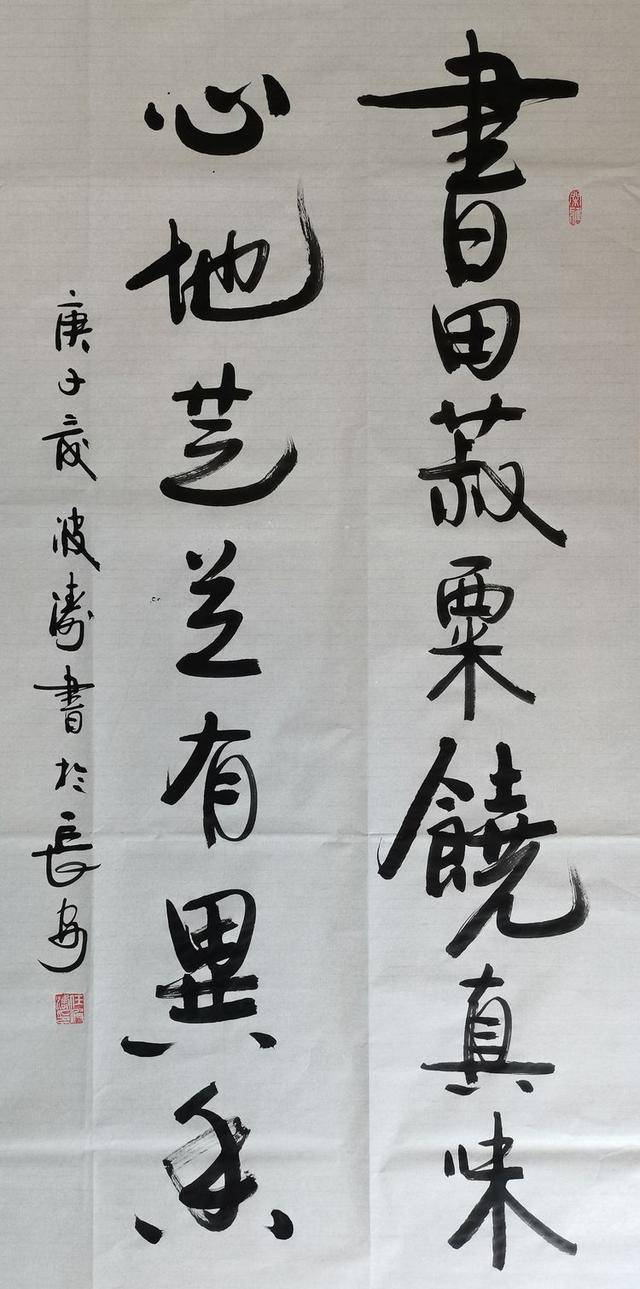 書田菽粟饒真味
心地芝兰有異香
庚子歲波濤書於長安